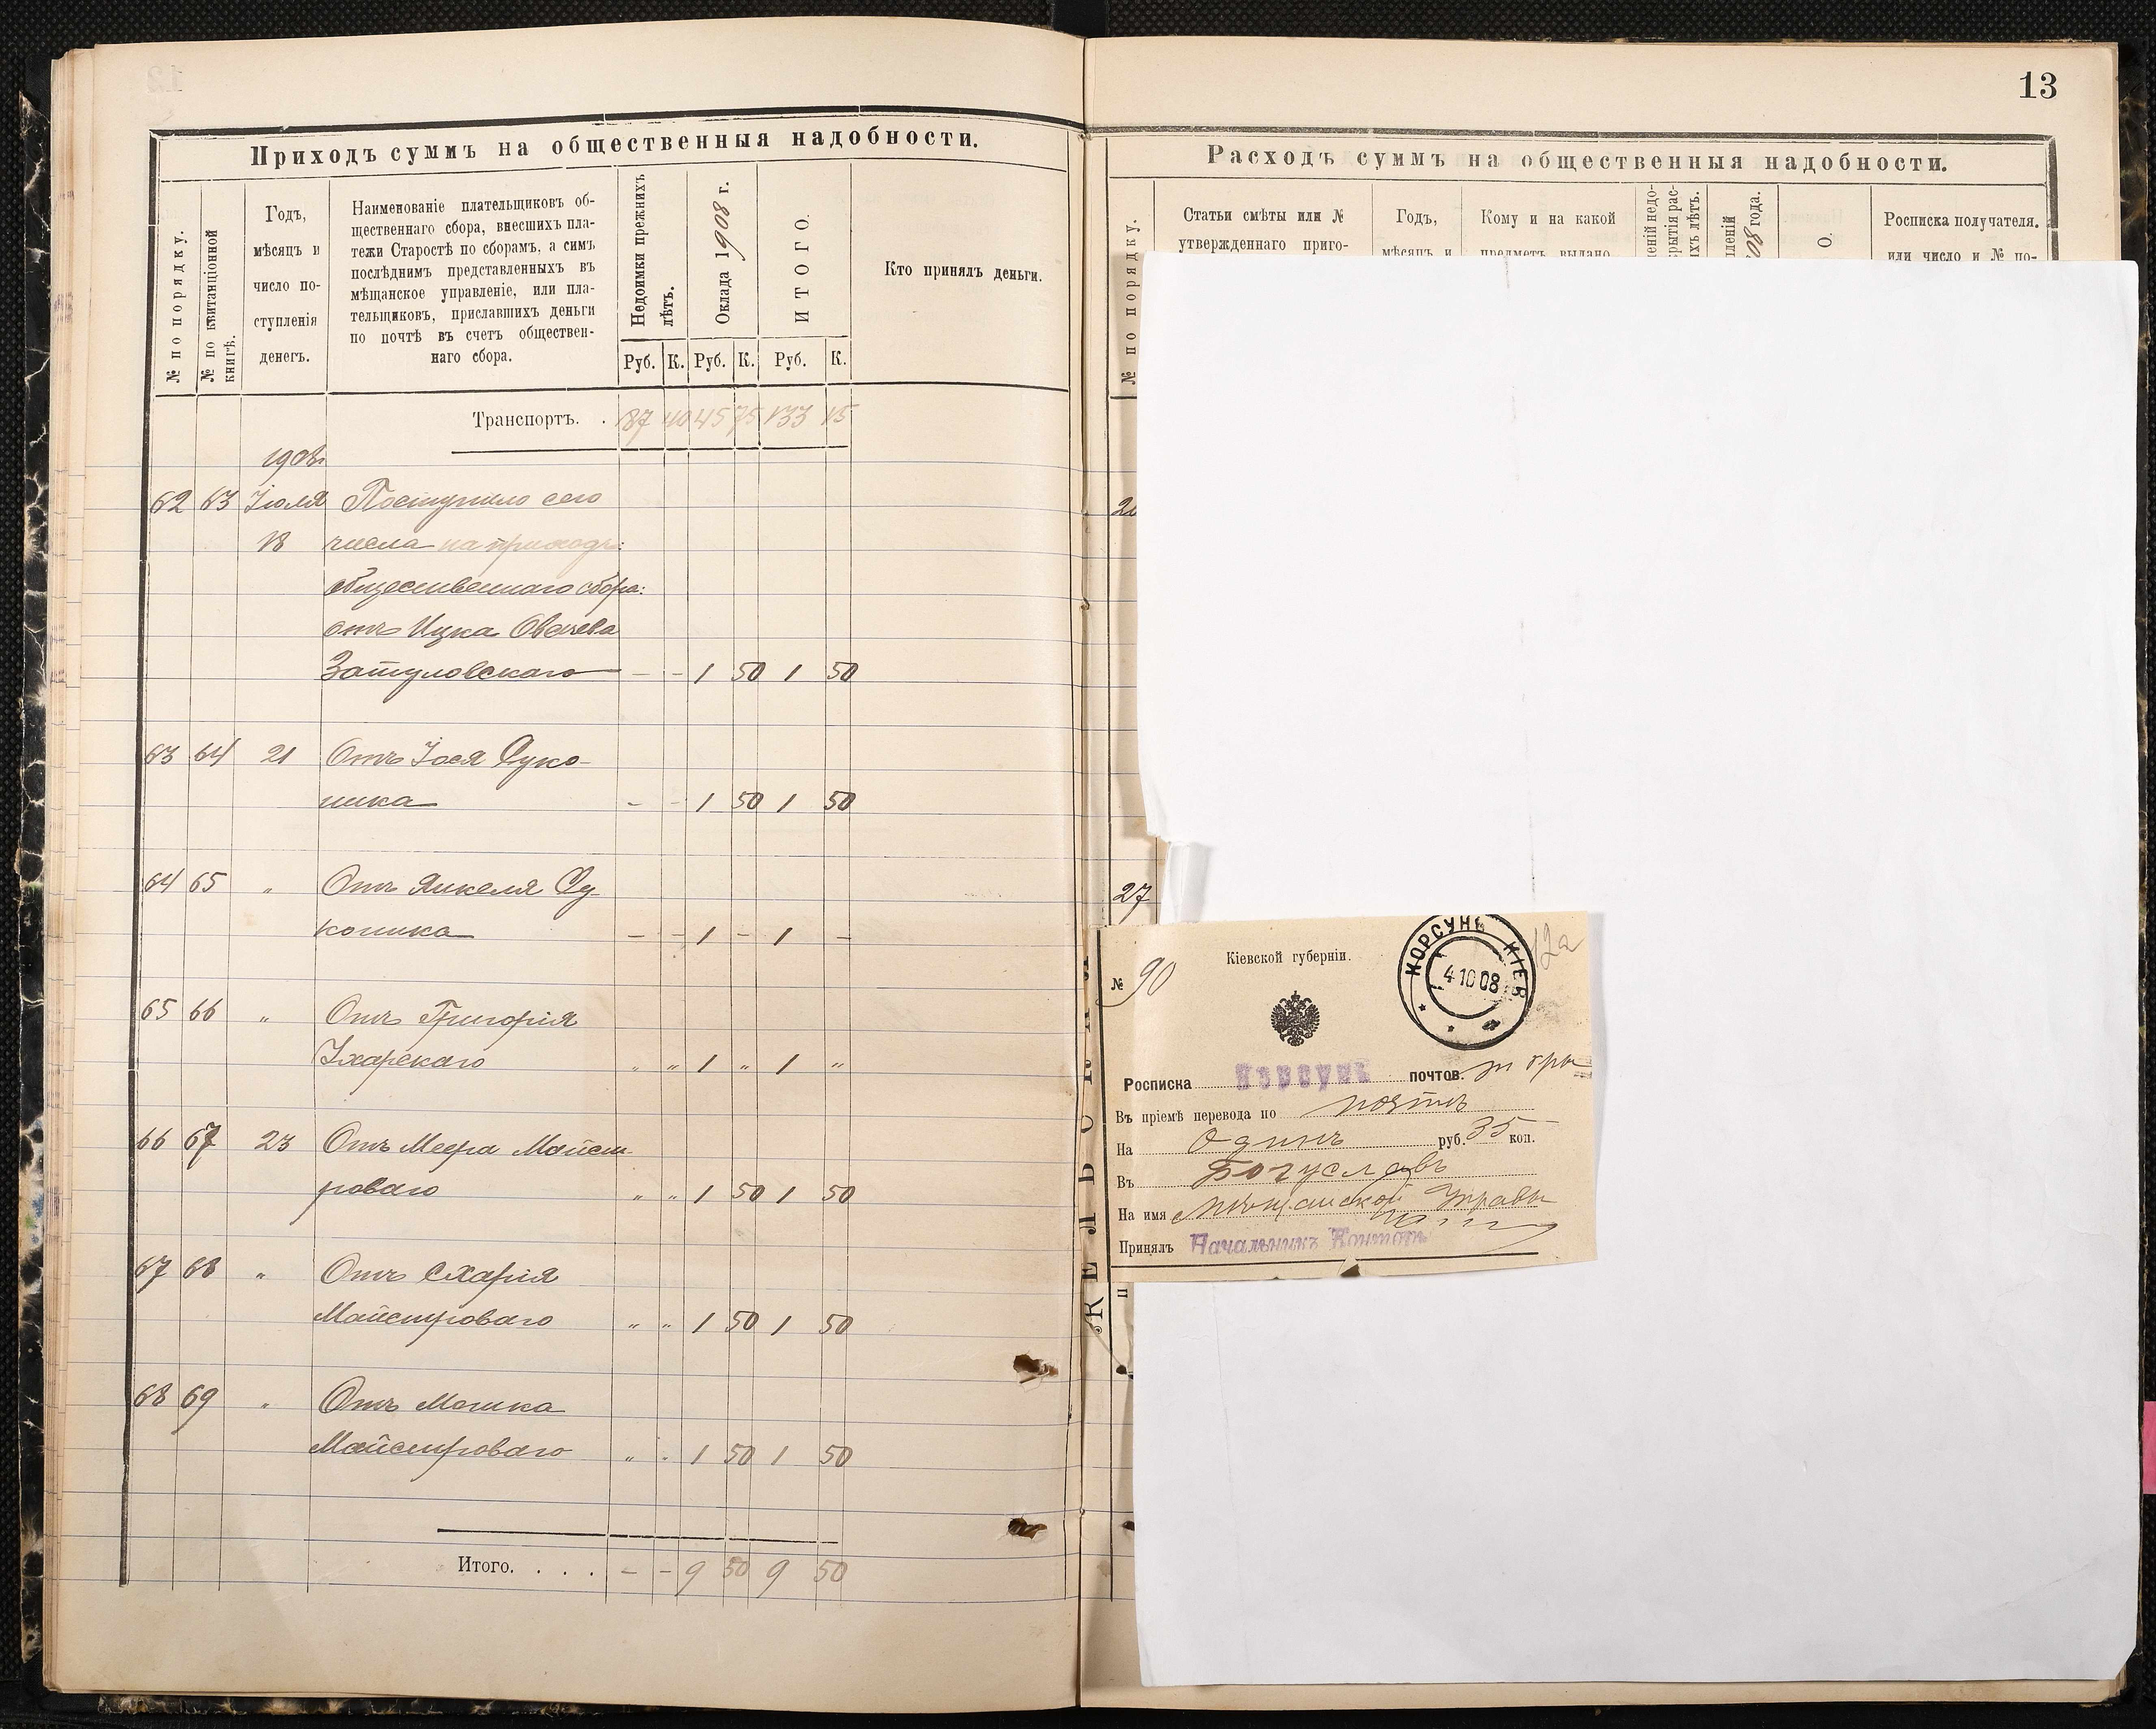 13
Приходъ суммъ на общественныя надобности.
№ по порядку.
№ по квитанціонной книгѣ.
Годъ,
мѣсяцъ и
число по-
ступленія
денегъ.
Наименованіе плательщиковъ об-
щественнаго сбора, внесшихъ пла-
тежи Старостѣ по сборамъ, а симъ
послѣднимъ представленныхъ въ
мѣщанское управленіе, или пла-
тельщиковъ, приславшихъ деньги
по почтѣ въ счетъ обществен-
наго сбора.
Недоимки прежнихъ лѣтъ.
Оклада 1908 г.
ИТОГО.
Кто принялъ деньги.
Руб. К. Руб. К. Руб. К.
Транспортъ. . 87 40 45 75 133 15
1908г
62 63 Іюля Поступило сего
18 числа на приходъ:
общественнаго сбора:
отъ Ицка Овшева
Затуловскаго — — 1 50 1 50
63 64 21 Отъ Іося Суко-
ника - - 1 50 1 50
64 65 " Отъ Янкеля Су-
коника — — 1 — 1 —
65 66 " Отъ Григорія
" " 1 " 1 "
66 67 23 Отъ Меера Майст-
роваго " " 1 50 1 50
67 68 " Отъ Схарія
Майстроваго " " 1 50 1 50
68 69 " Отъ Мошка
Майстроваго " " 1 50 1 50
Итого. . . . . — — 9 50 9 50
Расходъ суммъ на общественныя надобности.
№ по порядку.
Статьи смѣты или №
утвержденнаго приго-
Годъ,
мѣсяцъ и
Кому и на какой
предметъ выдано
ній недо-
рытія рас-
хъ лѣтъ.
лленій
08 года.
О.
Росписка получателя.
или число и № по-
27
12а
Кіевской губерніи.
№ 90
КОРСУНЬ КІЕВ
4 10 08
а
Росписка Корсунь почтов.
Въ пріемѣ перевода по почтѣ
На Одинъ руб. 35 коп.
Въ Богуславъ
На имя Мѣщанской Управы
Принялъ Начальникъ Конторы